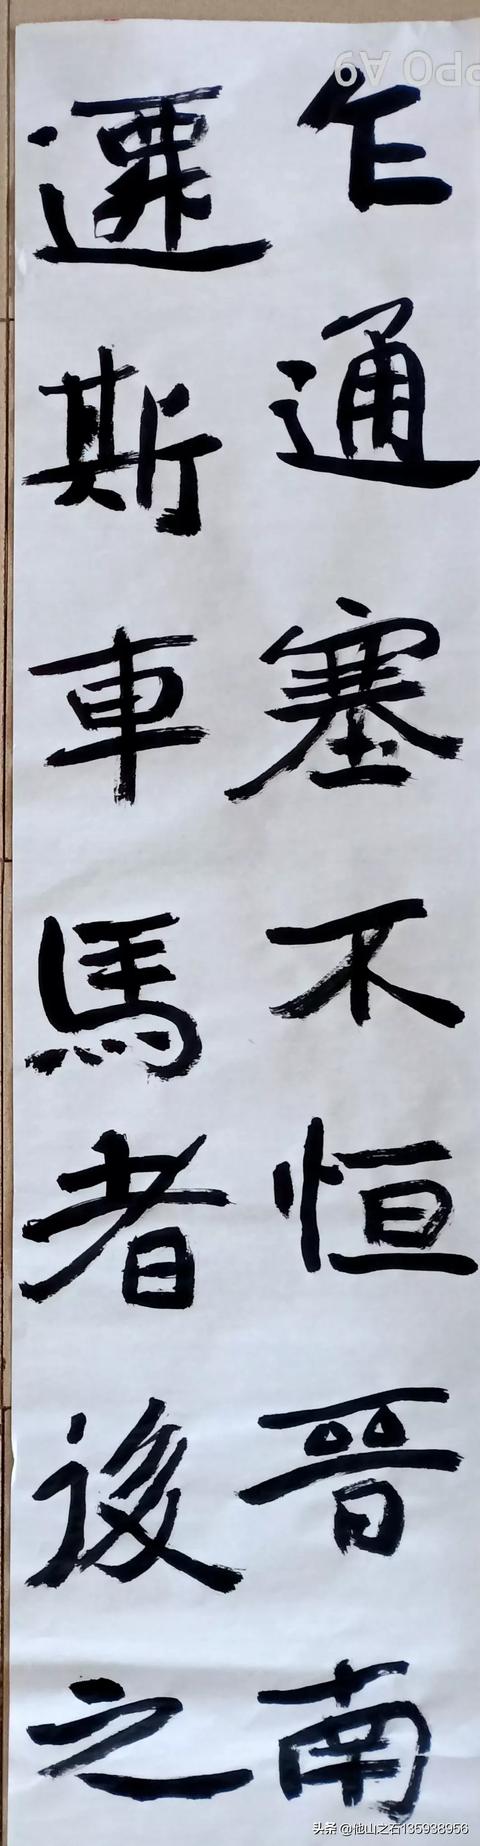 乍通塞不恒晉南
遷斯車馬者後之
PPO A9
头条 @他山之石135938956